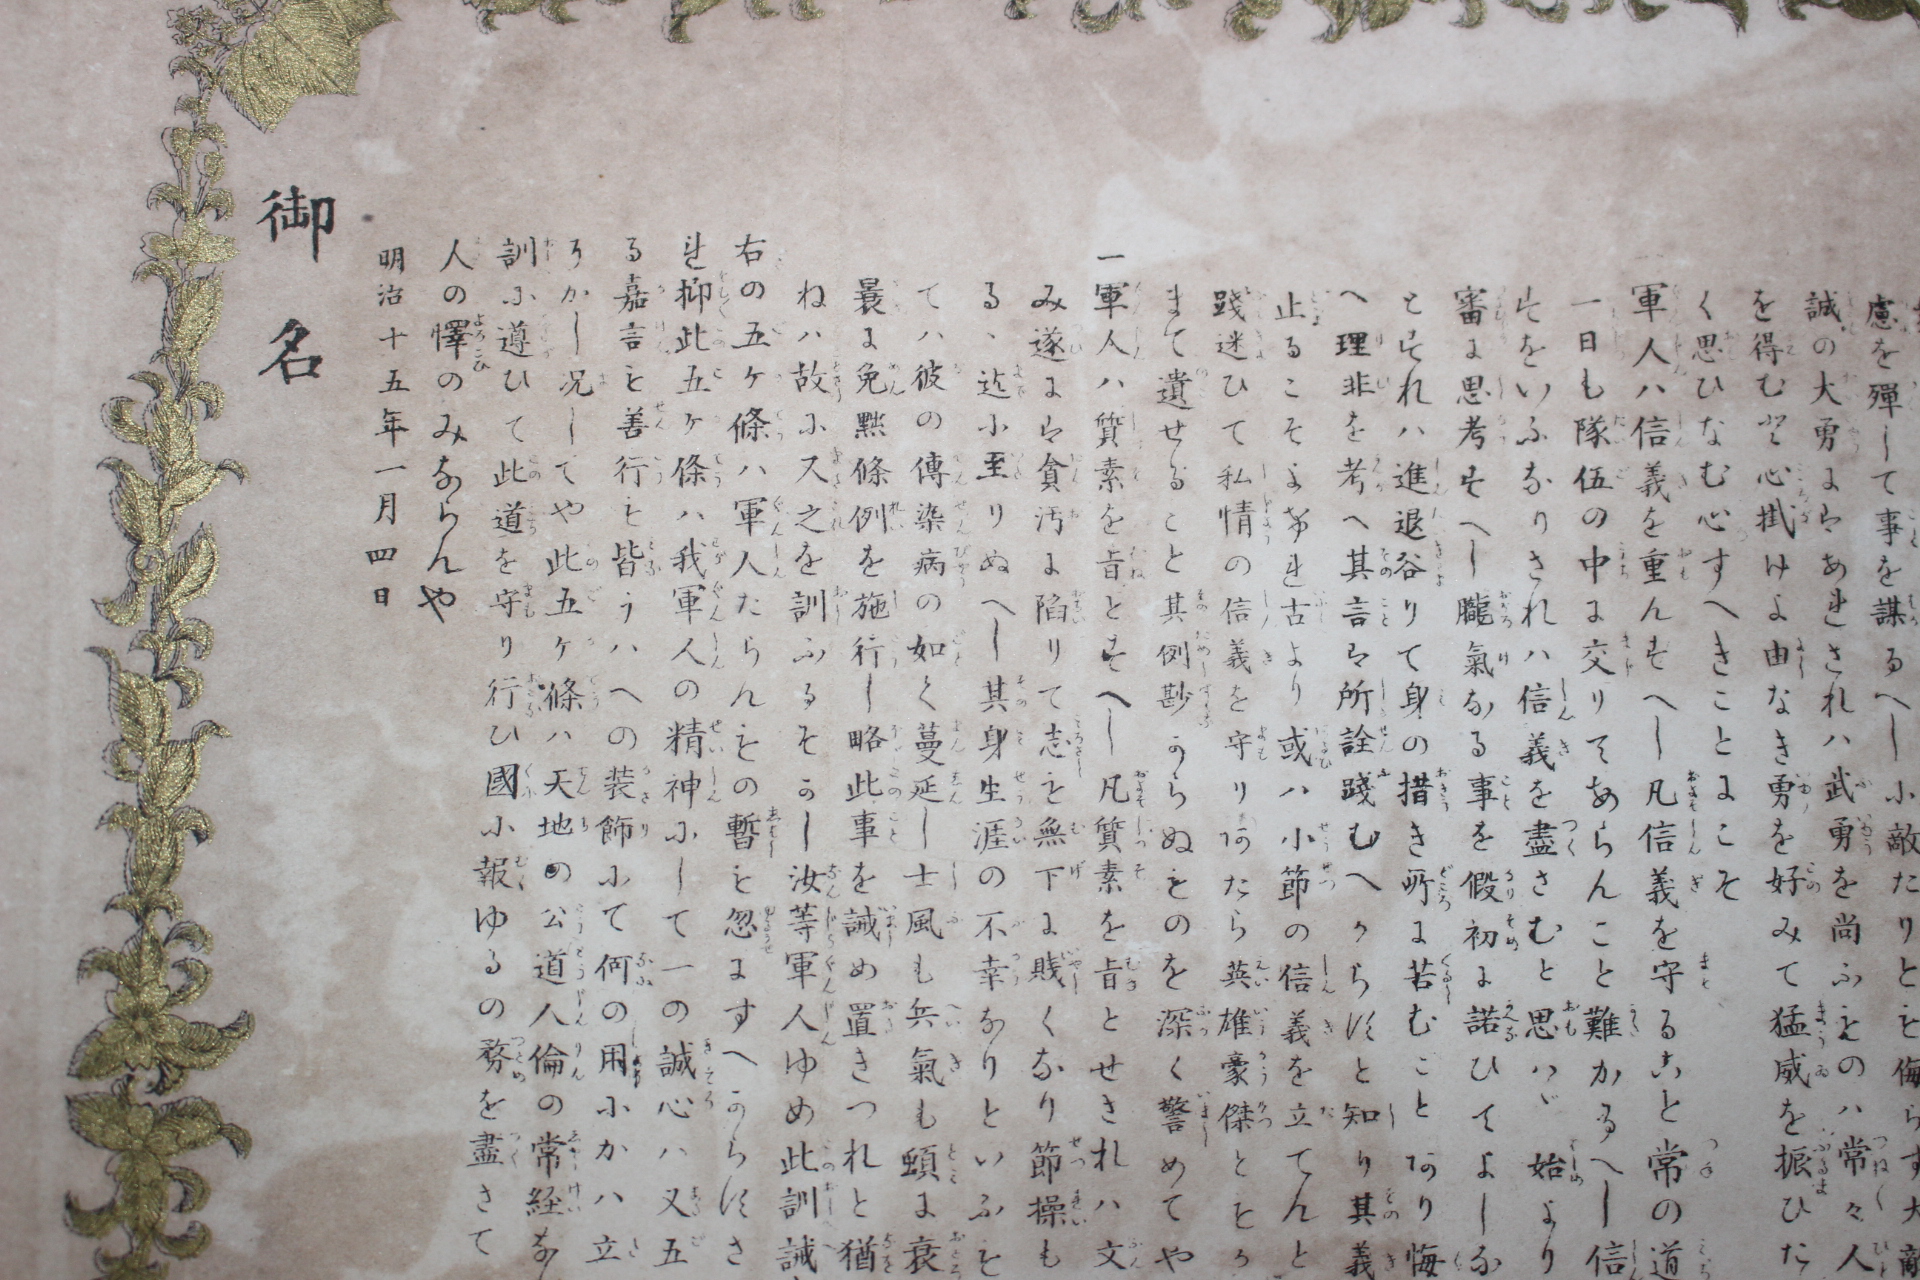 慮を殫して事を謀るへし小敵たりとも侮らす大敵
誠の大勇にはあれされハ武勇を尚ふものハ常々人
を得むと心掛けよ由なき勇を好みて猛威を振ひた
く思ひなむ心すへきことにこそ
一軍人ハ信義を重んすへし凡信義を守ること常の道
一日も隊伍の中に交りてあらんこと難かるへし信
すをいふなりされハ信義を盡さむと思はゝ始より
審に思考すへし朧氣なる事を假初に諾ひてよしな
とすれハ進退谷りて身の措き所に苦むことあり悔
へ理非を考へ其言は所詮踐むへからすと知り其義
止るこそよけれ古より或ハ小節の信義を立てんと
踐迷ひて私情の信義を守りあたら英雄豪傑ともか
まて遺せること其例尠からぬものを深く警めてや
一軍人ハ質素を旨とすへし凡質素を旨とせされハ文
み遂には貪汚に陥りて志も無下に賤くなり節操も
る、迄小至りぬへし其身生涯の不幸なりといふも
てハ彼の傳染病の如く蔓延し士風も兵氣も頓に衰
曩に免黜條例を施行し略此事を誡め置きつれと猶
ねハ故に又之を訓ふるそかし汝等軍人ゆめ此訓誡
右の五ヶ條ハ軍人たらんもの暫も忽にすへからすさ
れ抑此五ヶ條ハ我軍人の精神にして一の誠心ハ又五
る嘉言も善行も皆うハへの装飾にて何の用にかハ立
るかし况してや此五ヶ條ハ天地の公道人倫の常経な
訓に遵ひて此道を守り行ひ國に報ゆるの務を盡さて
人の懌のみならんや
明治十五年一月四日
御名